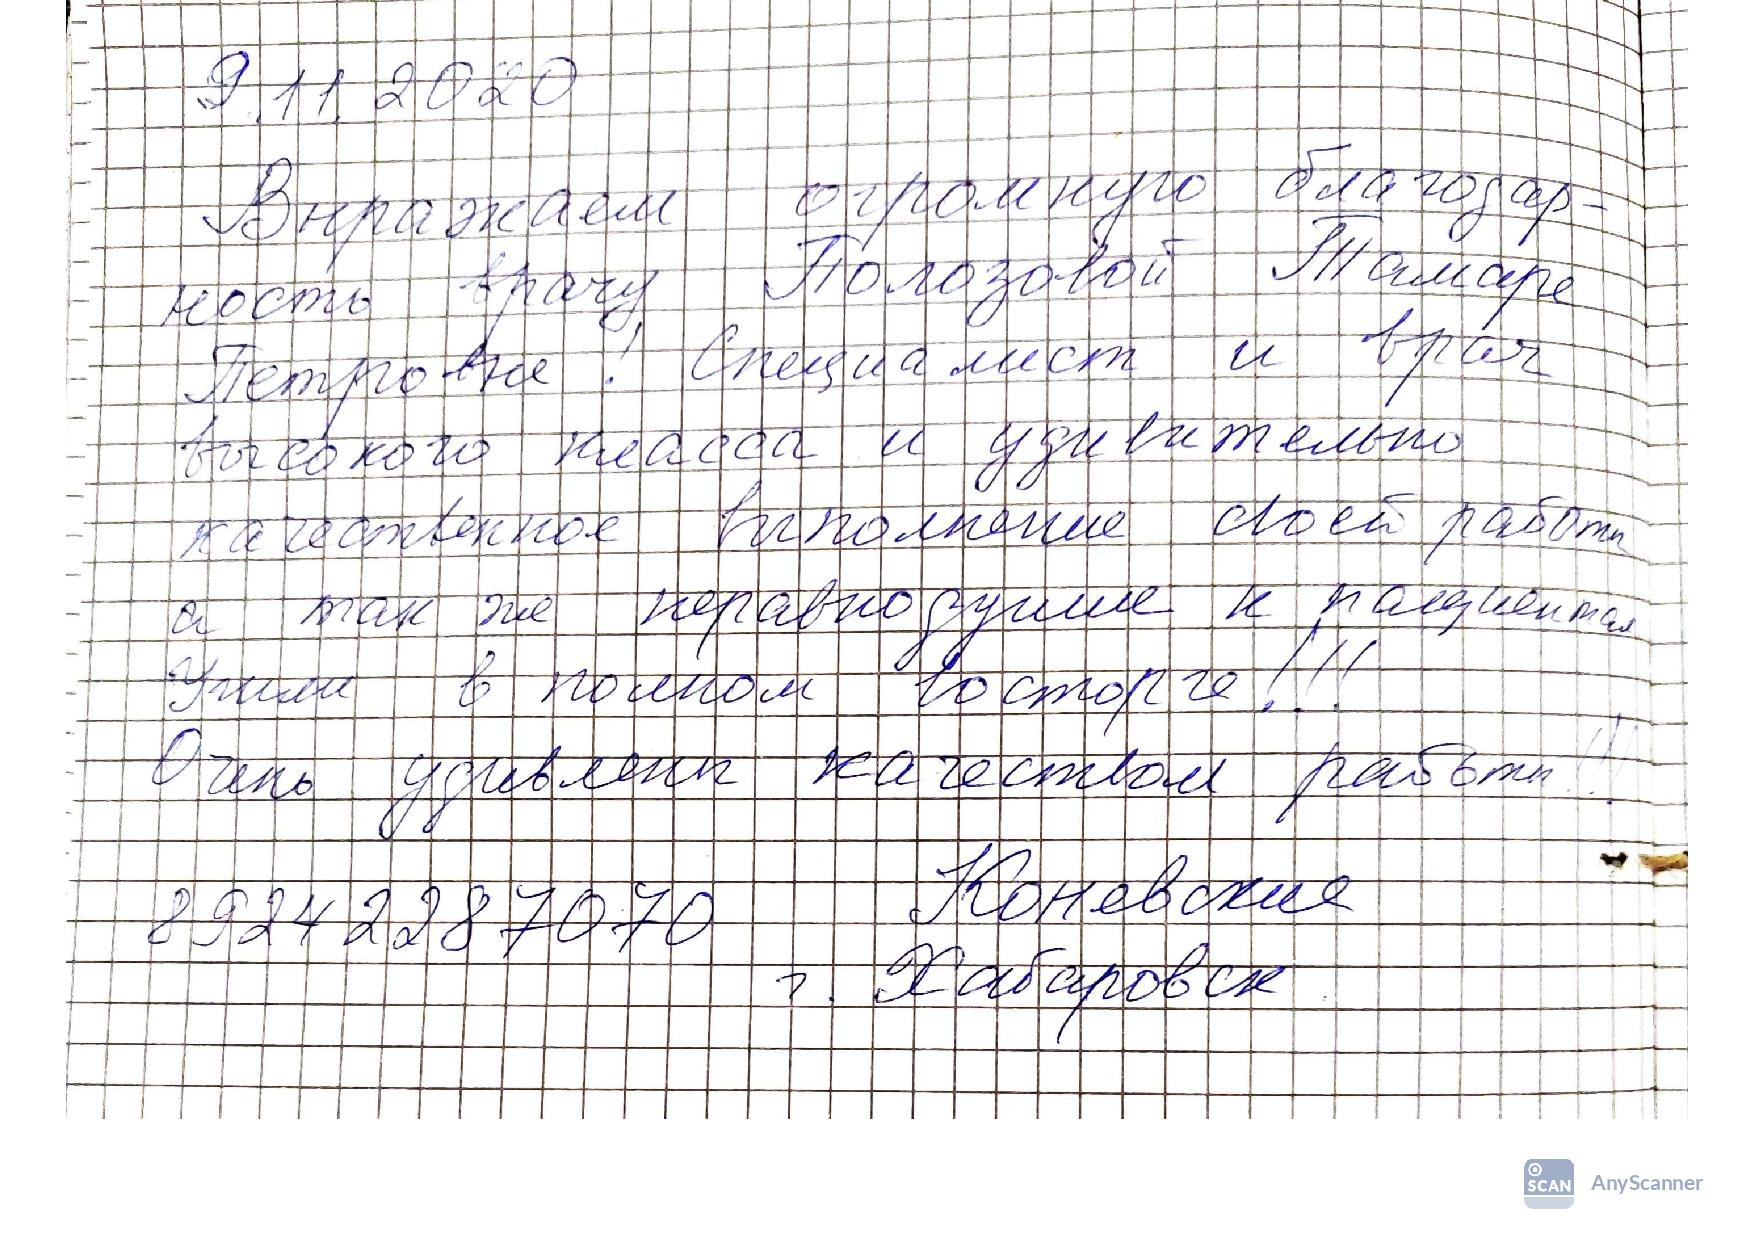 9.11.2020
Выражаем огромную благодар-
ность врачу Полозовой Тамаре
Петровне! Специалист и врач
высокого класса и удивительно
качественное выполнение своей работы
а так же неравнодушие к пациентам
Ушли в полном восторге!!!
Очень удивлены качеством работы!!!
89242287070 Коневские
г. Хабаровск
SCAN AnyScanner